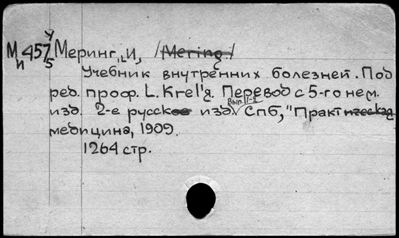 У
М 457 Меринг, И, /Mering./
и 5
Учебник внутренних болезней. Под
ред. проф. L. Krel'я. Перевод с 5-го нем.
Вып. II-й
изд. 2-е русское изд. Спб, "Практическая
медицина, 1909.
1264 стр.